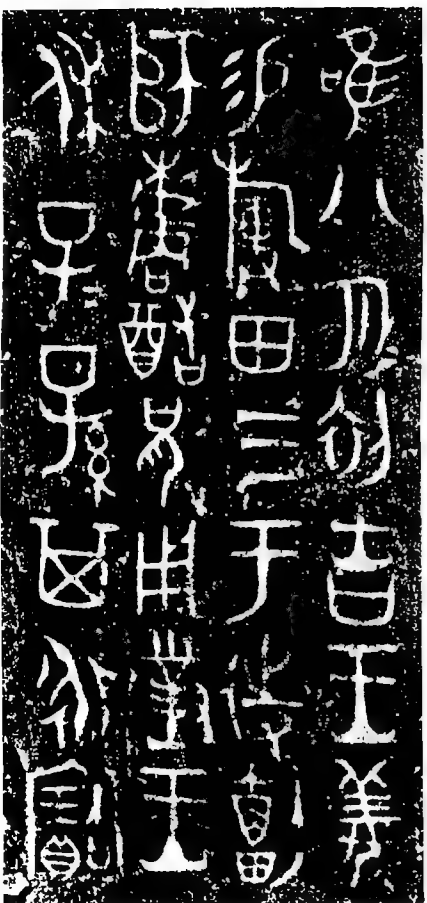 唯八月初吉王姜
易旟田三于待劃
師櫨酷兄用對王
休子=孫其永寶